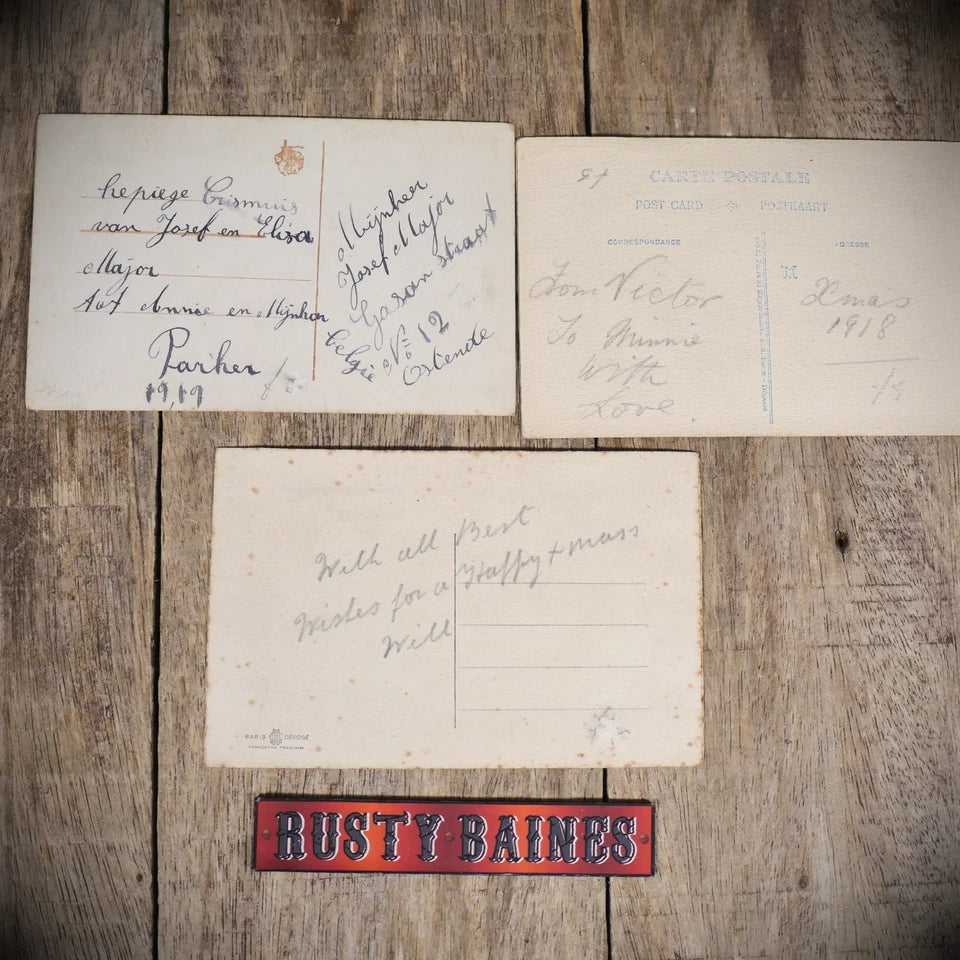 hepiege Crismuis
van Josef en Elisa
Major
tot Annie en Mijnher
Parker
1919
Mijnheer
Josef Major
Gasan straat
No 12
Ostende
belgie
CARTE POSTALE
POST CARD POSTKAART
CORRESPONDANCE
ADRESSE
From Victor
To Minnie
With
Love.
Xmas
1918
With all Best
Wishes for a Happy Xmass
Will
PARIS DÉPOSÉ
FABRICATION FRANÇAISE
RUSTY BAINES